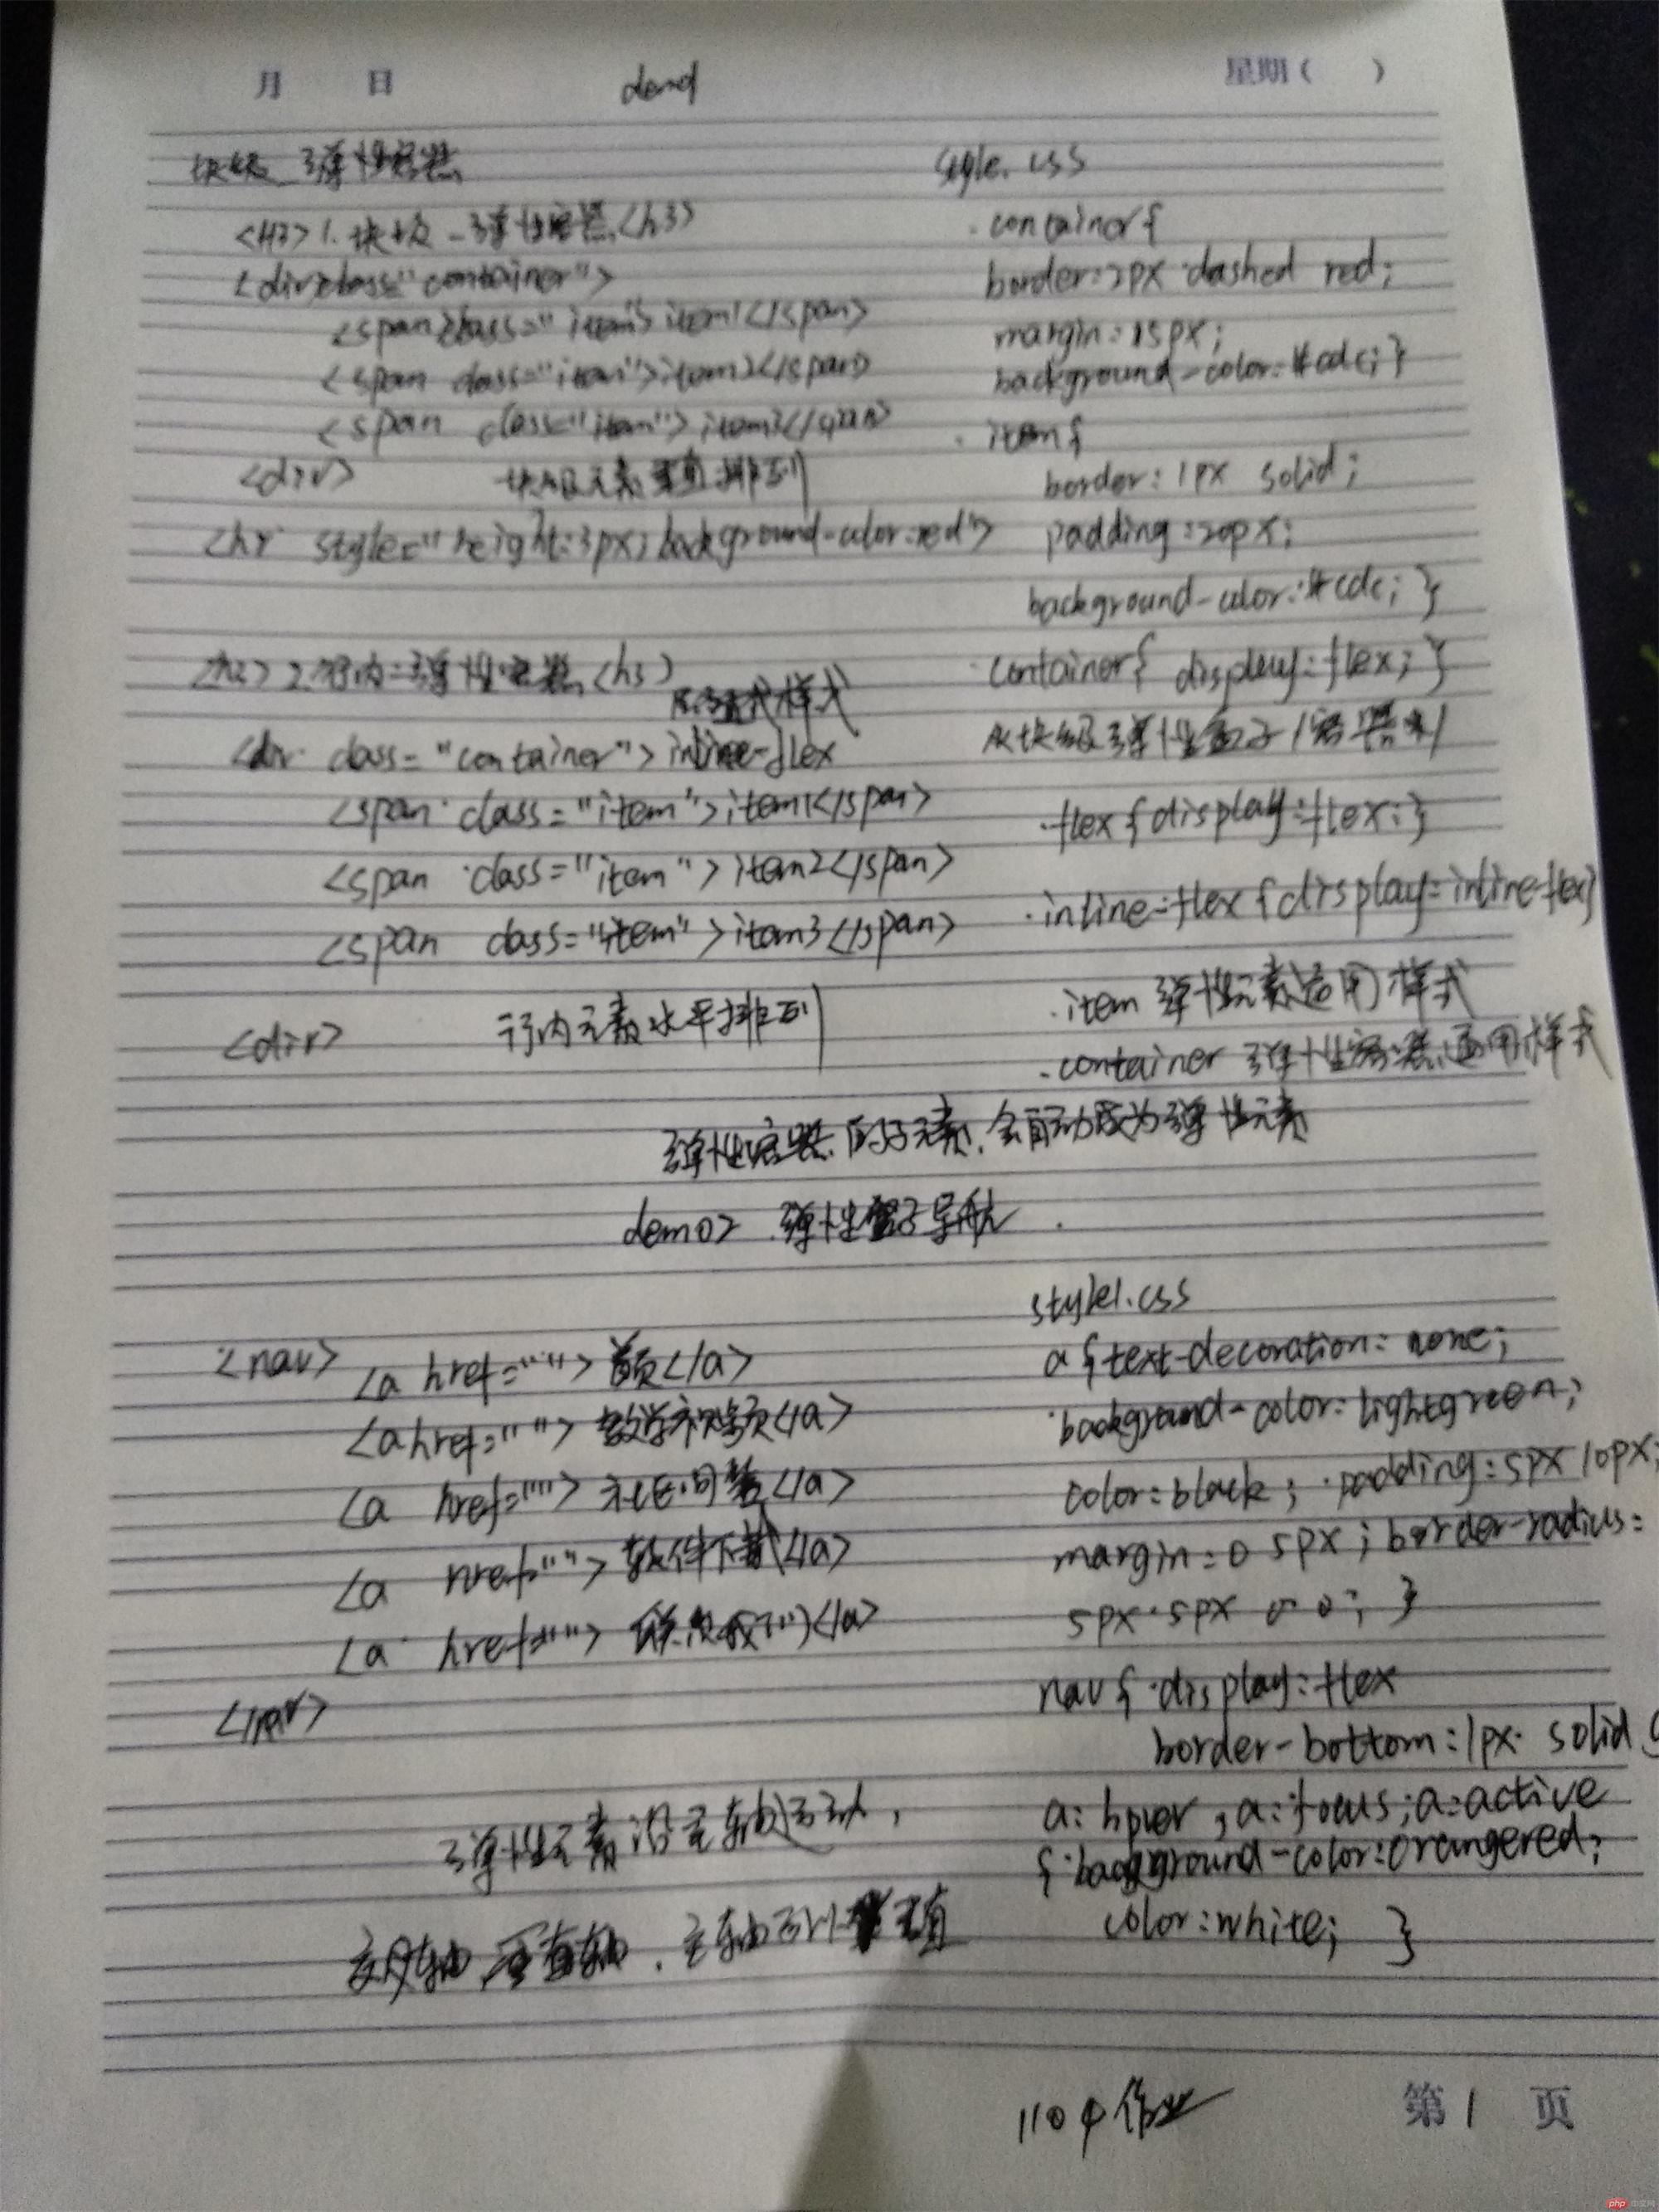 月 日 星期( )
demo1
块级 弹性容器
<H3>1.块级-弹性容器<h3>
<div class="container">
<span class="item">item1</span>
<span class="item">item2</span>
<span class="item">item3</span>
<div> 块级元素垂直排列
<hr style="height:3px;background-color:red">
<h3>2.行内-弹性容器<h3>
样式
<div class="container">inline-flex
<span class="item">item1</span>
<span class="item">item2</span>
<span class="item">item3</span>
<div> 行内元素水平排列
style.css
.container{
border:2px dashed red;
margin:15px;
background-color:#cdc;}
.item{
border:1px solid;
padding:20px;
background-color:#cdc;}
.container{display:flex;}
块级弹性盒子/容器
.flex{display:flex;}
.inline-flex{display:inline-flex}
.item 弹性元素通用样式
.container 弹性容器通用样式
弹性容器的子元素,会自动成为弹性元素
demo2 弹性盒子导航
<nav> <a href="">首页</a>
<a href="">教学视频</a>
<a href="">社区问答</a>
<a href="">软件下载</a>
<a href="">联系我们</a>
</nav>
弹性元素沿主轴运动,
style1.css
a{text-decoration:none;
background-color:lightgreen;
color:black; padding:5px 10px;
margin:0 5px; border-radius:
5px 5px 0 0; }
nav{display:flex
border-bottom:1px solid
a:hover,a:focus;a:active
{background-color:orangered;
color:white; }
1104作业
第1页
php中文网